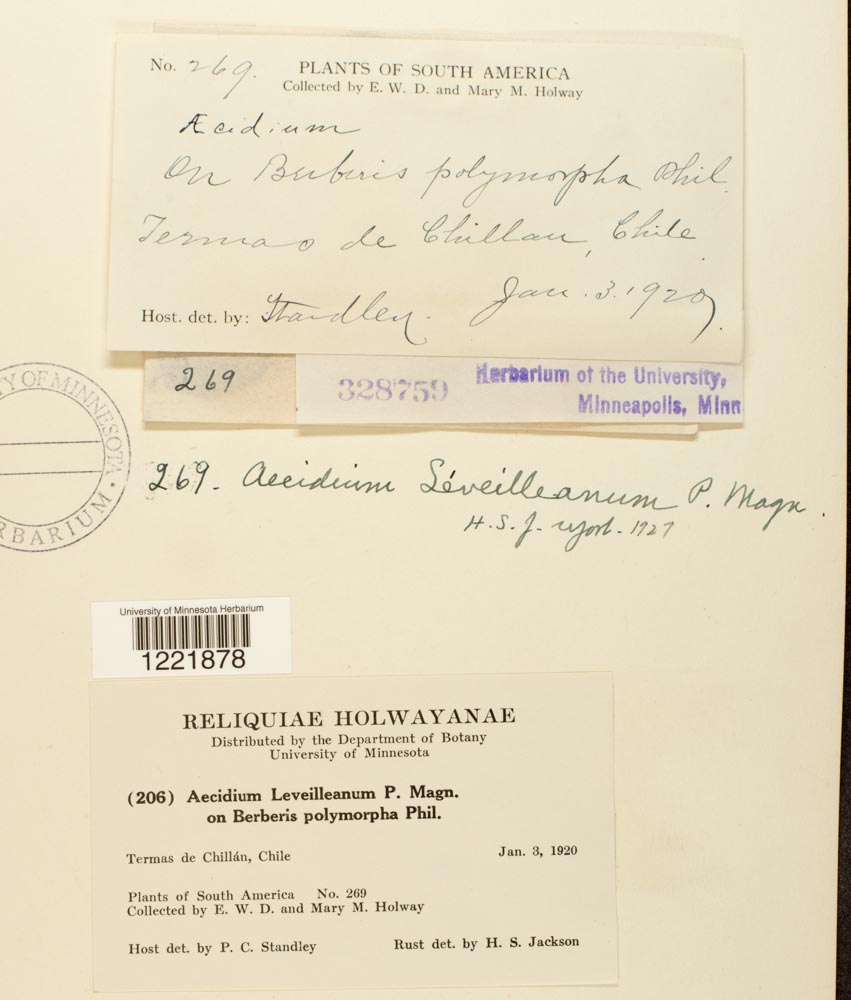 No. 269.
PLANTS OF SOUTH AMERICA
Collected by E. W. D. and Mary M. Holway
Æcidium
On Berberis polymorpha Phil.
Termas de Chillan, Chile.
Jan. 3. 1920
Host. det. by: Standley.
269
328759
Herbarium of the University,
Minneapolis, Minn
TY OF MINNESOTA
RBARIUM
269. Aecidium Léveilleanum P. Magn.
H. S. J. 1927
University of Minnesota Herbarium
1221878
RELIQUIAE HOLWAYANAE
Distributed by the Department of Botany
University of Minnesota
(206) Aecidium Leveilleanum P. Magn.
on Berberis polymorpha Phil.
Termas de Chillán, Chile
Jan. 3, 1920
Plants of South America No. 269
Collected by E. W. D. and Mary M. Holway
Host det. by P. C. Standley
Rust det. by H. S. Jackson